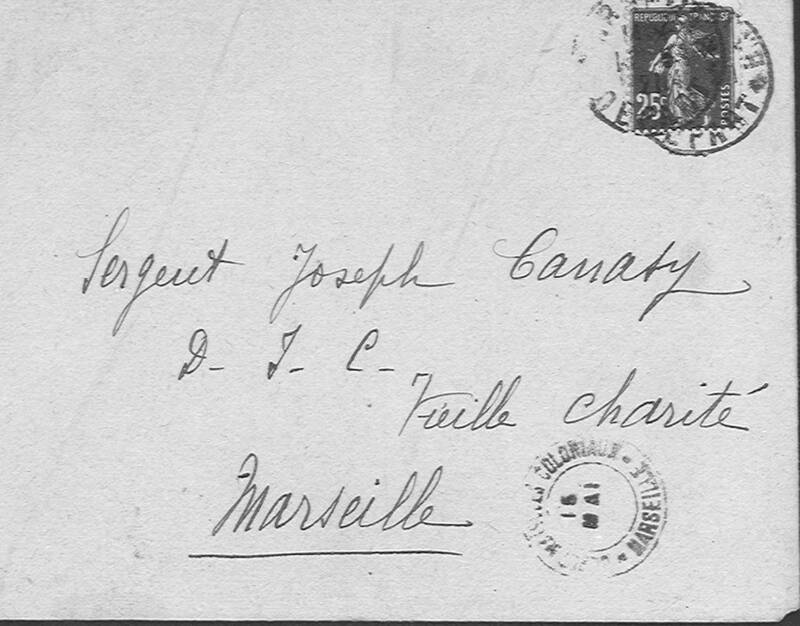 REPUBLIQUE FRANÇAISE
25c
POSTES
Sergent Joseph Canaby
D- I- C-
Vieille charité
Marseille
COLONIAUX - MARSEILLE
15
MAI